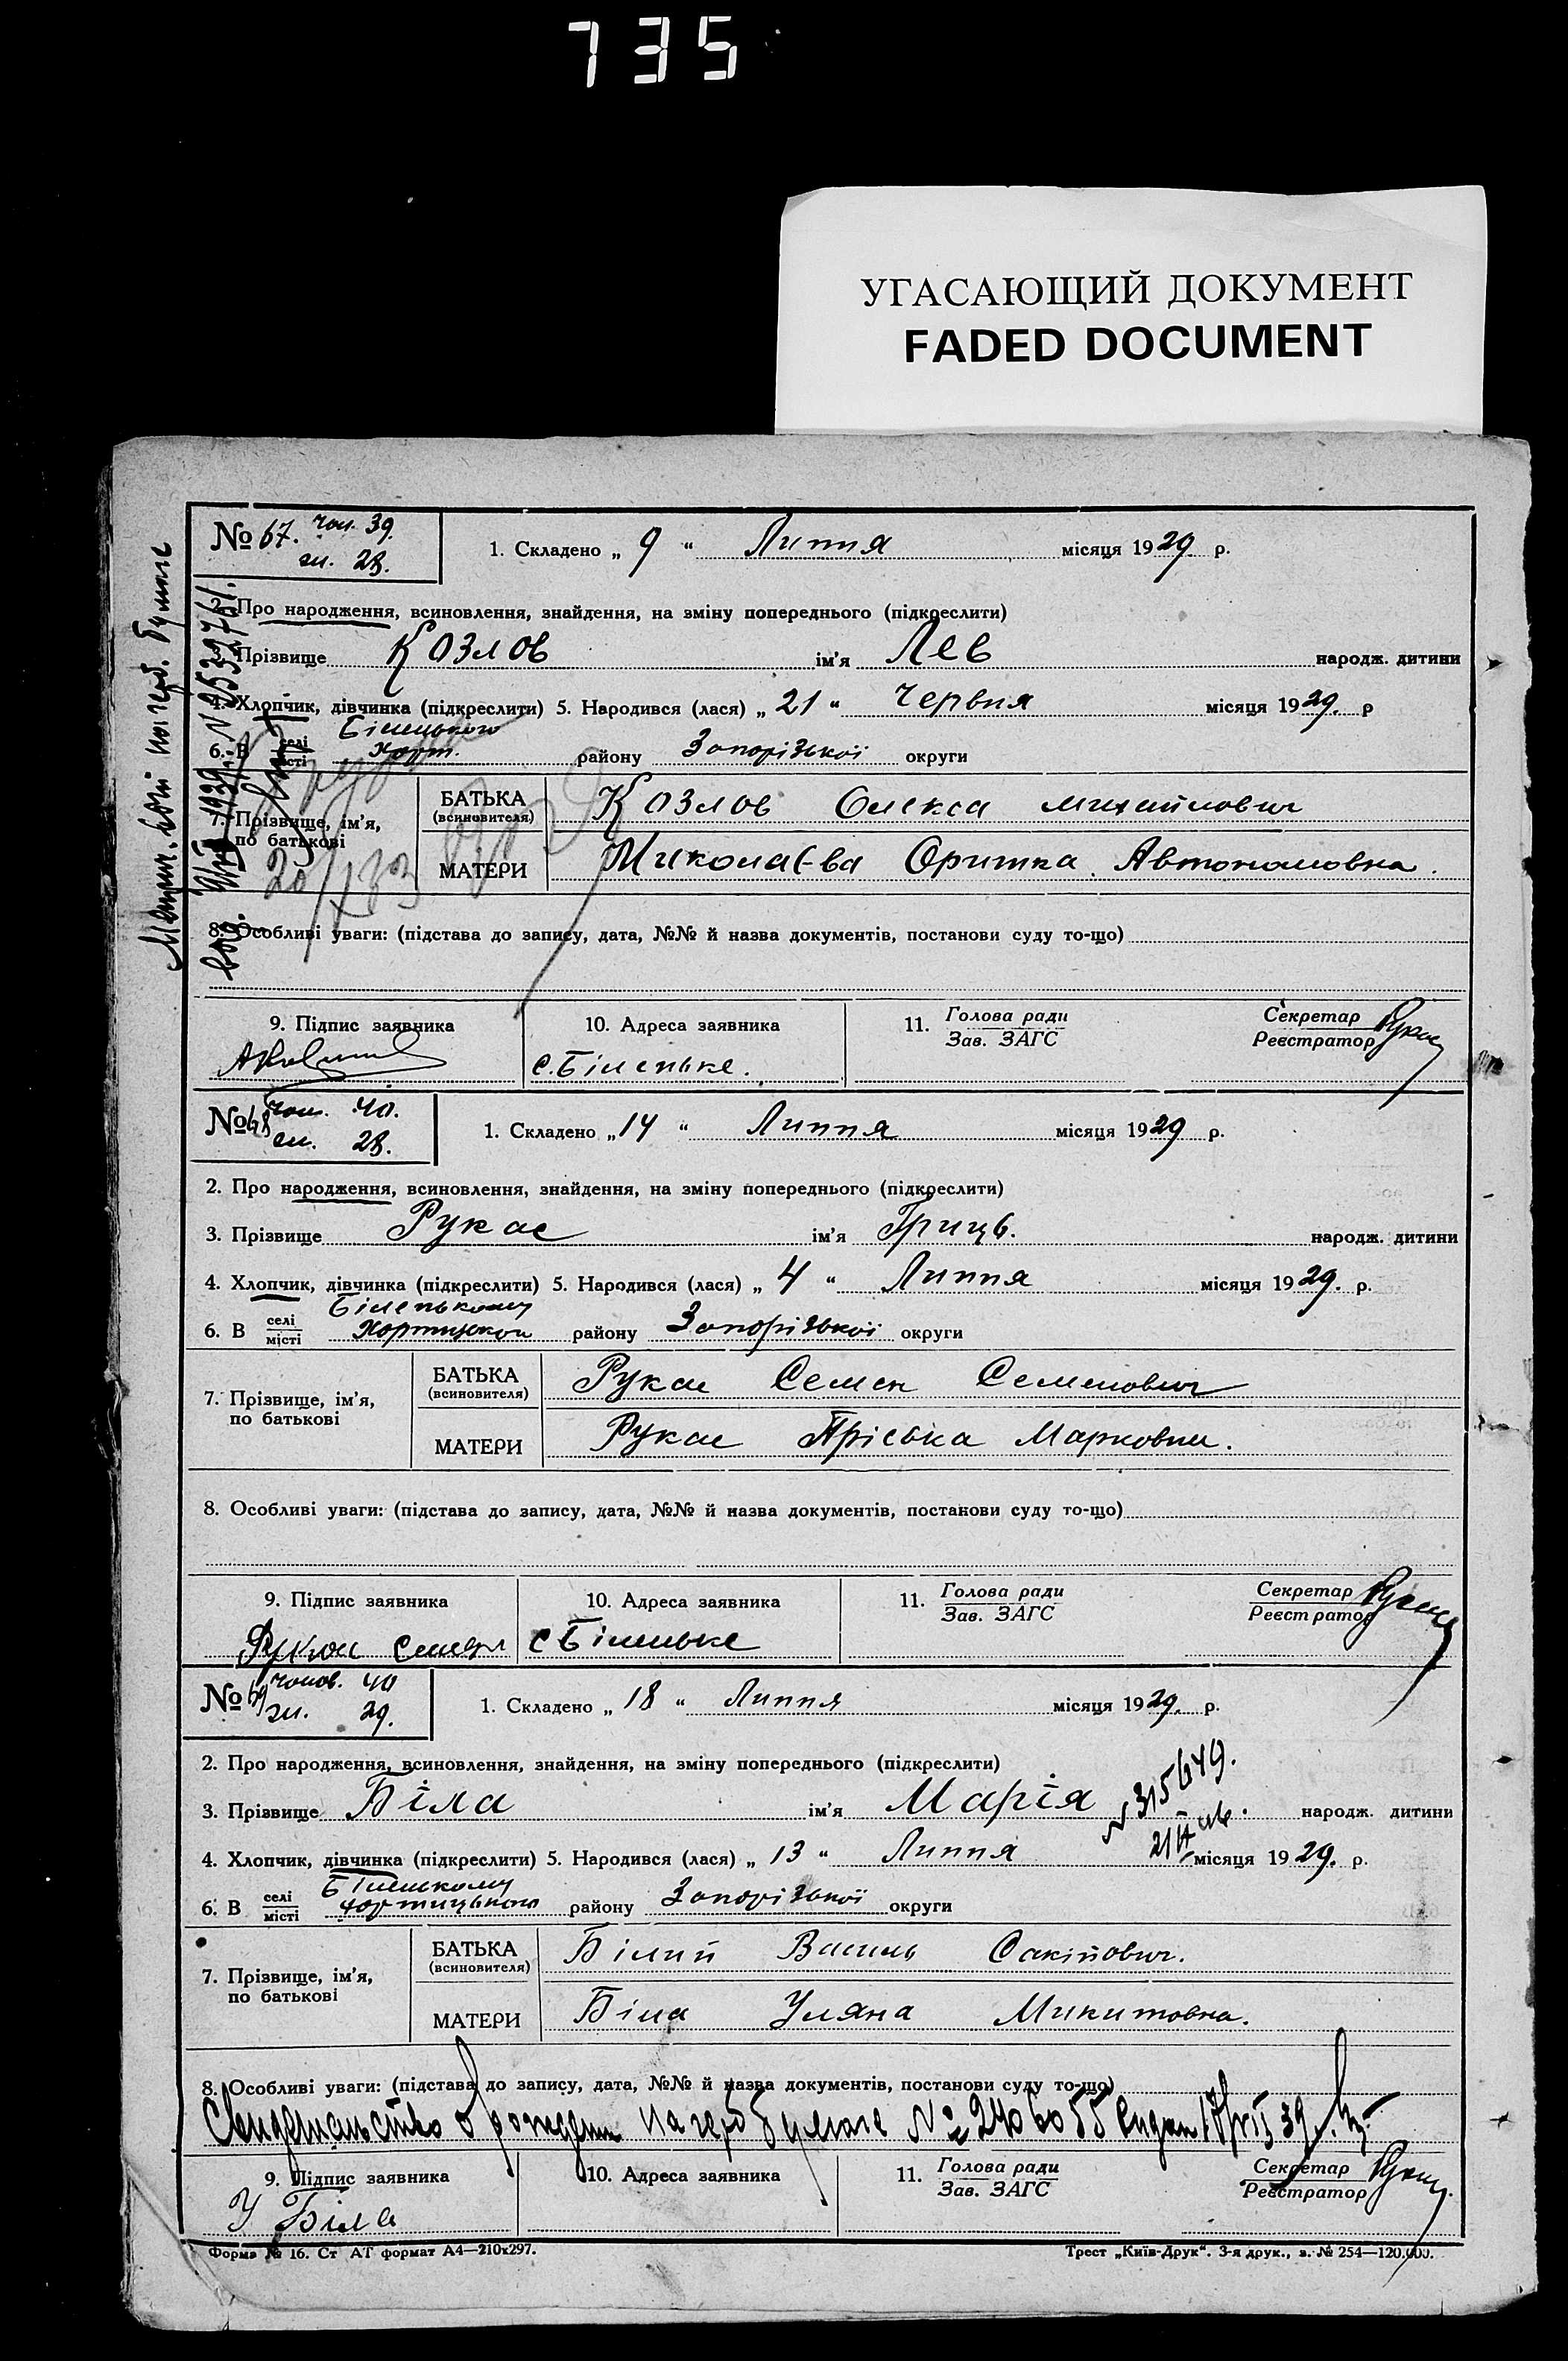 735
УГАСАЮЩИЙ ДОКУМЕНТ
FADED DOCUMENT
№ 67. чол. 39.
жи. 28.
1. Складено „ 9 “ Липня місяця 1929 р.
2. Про народження, всиновлення, знайдення, на зміну попереднього (підкреслити)
3. Прізвище Козлов ім'я Лев народж. дитини
4. Хлопчик, дівчинка (підкреслити) 5. Народився (лася) „ 21 “ Червня місяця 1929. р
6. В селі місті Хорт. району Запорізької округи
7. Прізвище, ім'я, по батькові
БАТЬКА (всиновителя) Козлов Олекса Михайлович
МАТЕРИ Оришка Автономовна.
8. Особливі уваги: (підстава до запису, дата, №№ й назва документів, постанови суду то-що)
9. Підпис заявника
10. Адреса заявника
с. Біленьке.
11. Голова ради
Зав. ЗАГС
Секретар
Реєстратор
№ 68 чол. 40.
жи. 28.
1. Складено „ 14 “ Липня місяця 1929 р.
2. Про народження, всиновлення, знайдення, на зміну попереднього (підкреслити)
3. Прізвище Рукас ім'я Гриць. народж. дитини
4. Хлопчик, дівчинка (підкреслити) 5. Народився (лася) „ 4 “ Липня місяця 1929. р.
Біленькому
6. В селі місті Хортицькои району Запорізької округи
7. Прізвище, ім'я, по батькові
БАТЬКА (всиновителя) Рукас Семен Семенович
МАТЕРИ Рукас Пріська Марковна.
8. Особливі уваги: (підстава до запису, дата, №№ й назва документів, постанови суду то-що)
9. Підпис заявника
10. Адреса заявника
с Біленьке
11. Голова ради
Зав. ЗАГС
Секретар
Реєстратор
№ 69 чолов. 40
жи. 29.
1. Складено „ 18 “ Липня місяця 1929. р.
2. Про народження, всиновлення, знайдення, на зміну попереднього (підкреслити)
3. Прізвище Біла ім'я Марія народж. дитини
N 315649.
4. Хлопчик, дівчинка (підкреслити) 5. Народився (лася) „ 13 “ Липня місяця 1929. р.
6. В селі місті Хортицького району Запорізької округи
7. Прізвище, ім'я, по батькові
БАТЬКА (всиновителя) Білий Василь
МАТЕРИ Біла Уляна Микитовна.
8. Особливі уваги: (підстава до запису, дата, №№ й назва документів, постанови суду то-що)
Свидетельство о рождении на герб бумаге № 2406055
9. Підпис заявника
У Біла
10. Адреса заявника
11. Голова ради
Зав. ЗАГС
Секретар
Реєстратор
Форма № 16. Ст АТ формат А4—210х297.
Трест „Київ-Друк“. 3-я друк., з. № 254—120.000.